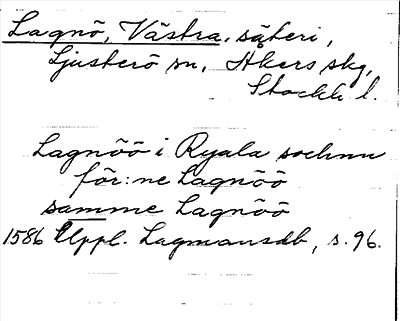 Lagnö, Västra, säteri,
Ljusterö sn, Åkers skg,
Stockh. l.
Lagnöö i Ryala sochnn
för:ne Lagnöö
samme Lagnöö
1586 Uppl. Lagmansdb, s. 96.